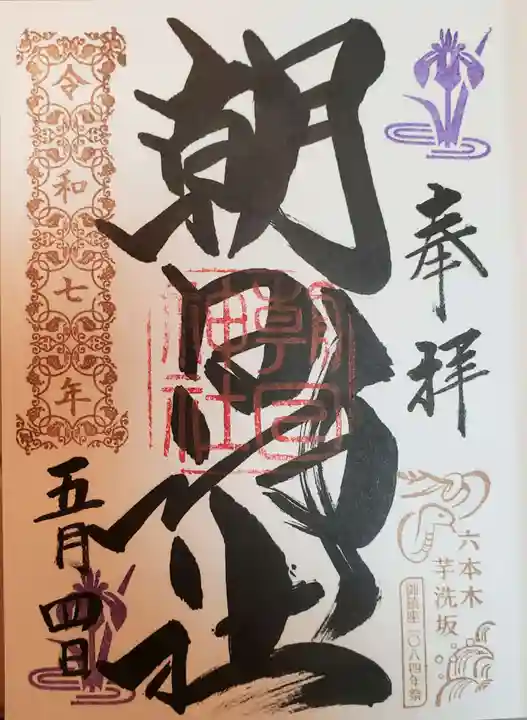 奉拝
六本木
芋洗坂
御鎮座一〇八四年祭
朝日神社
朝日
神社
令和七年
五月四日